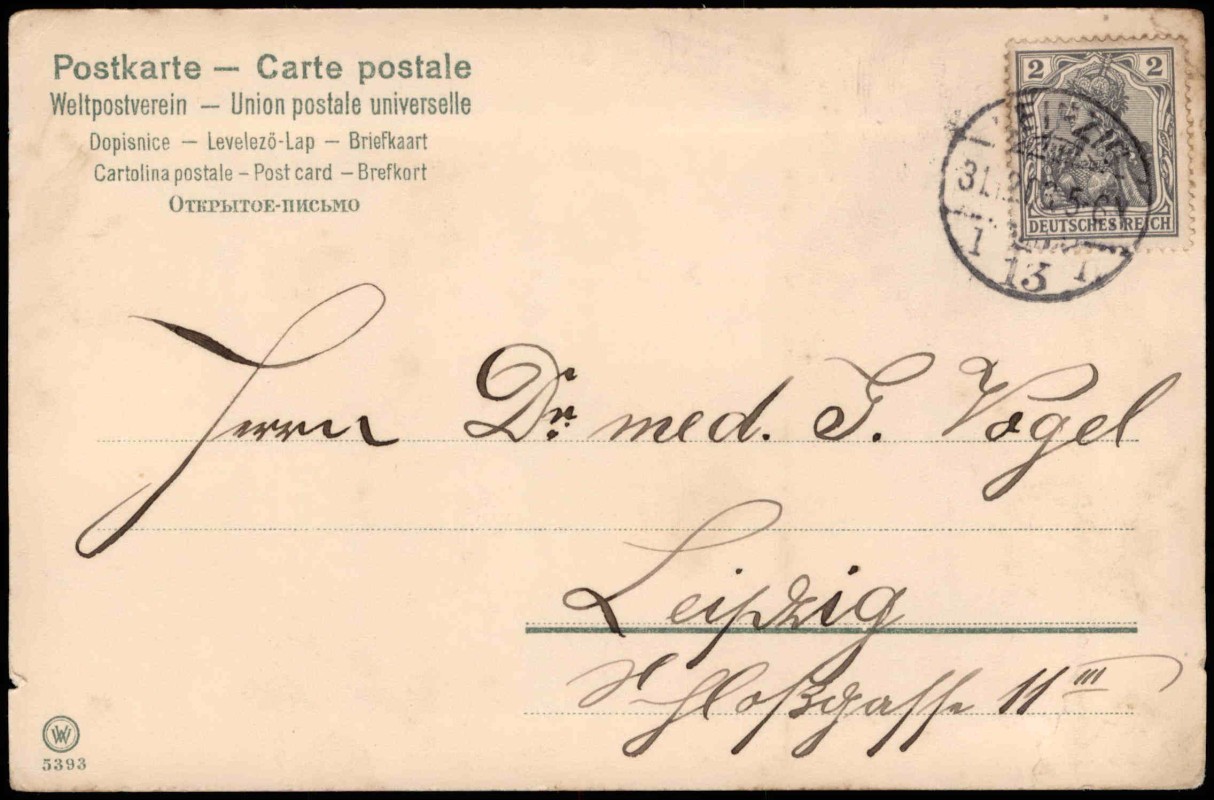 Postkarte – Carte postale
Weltpostverein – Union postale universelle
Dopisnice – Levelező-Lap – Briefkaart
Cartolina postale – Post card – Brefkort
Открытое-письмо
2 2
DEUTSCHES REICH
13
Herrn Dr. med. J. Vogel
Leipzig
Schloßgasse 11 III
W
5393